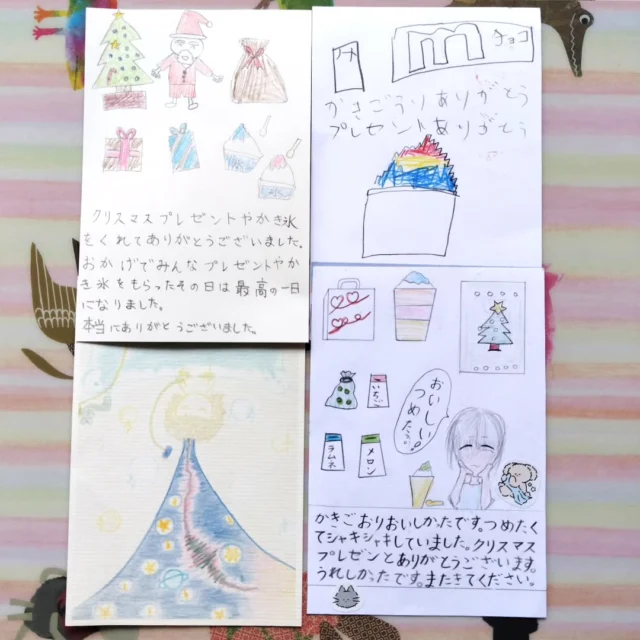 クリスマスプレゼントやかき氷
をくれてありがとうございました。
おかげでみんなプレゼントやか
き氷をもらったその日は最高の一日
になりました。
本当にありがとうございました。
m
チョコ
かきごうりありがとう
プレゼントありがとう
おいしい!
つめたっ。
ラムネ
メロン
かきごおりおいしかたです。つめたく
てシャキシャキしていました。クリスマス
プレゼンとありがとうございます。
うれしかったです。またきてください。